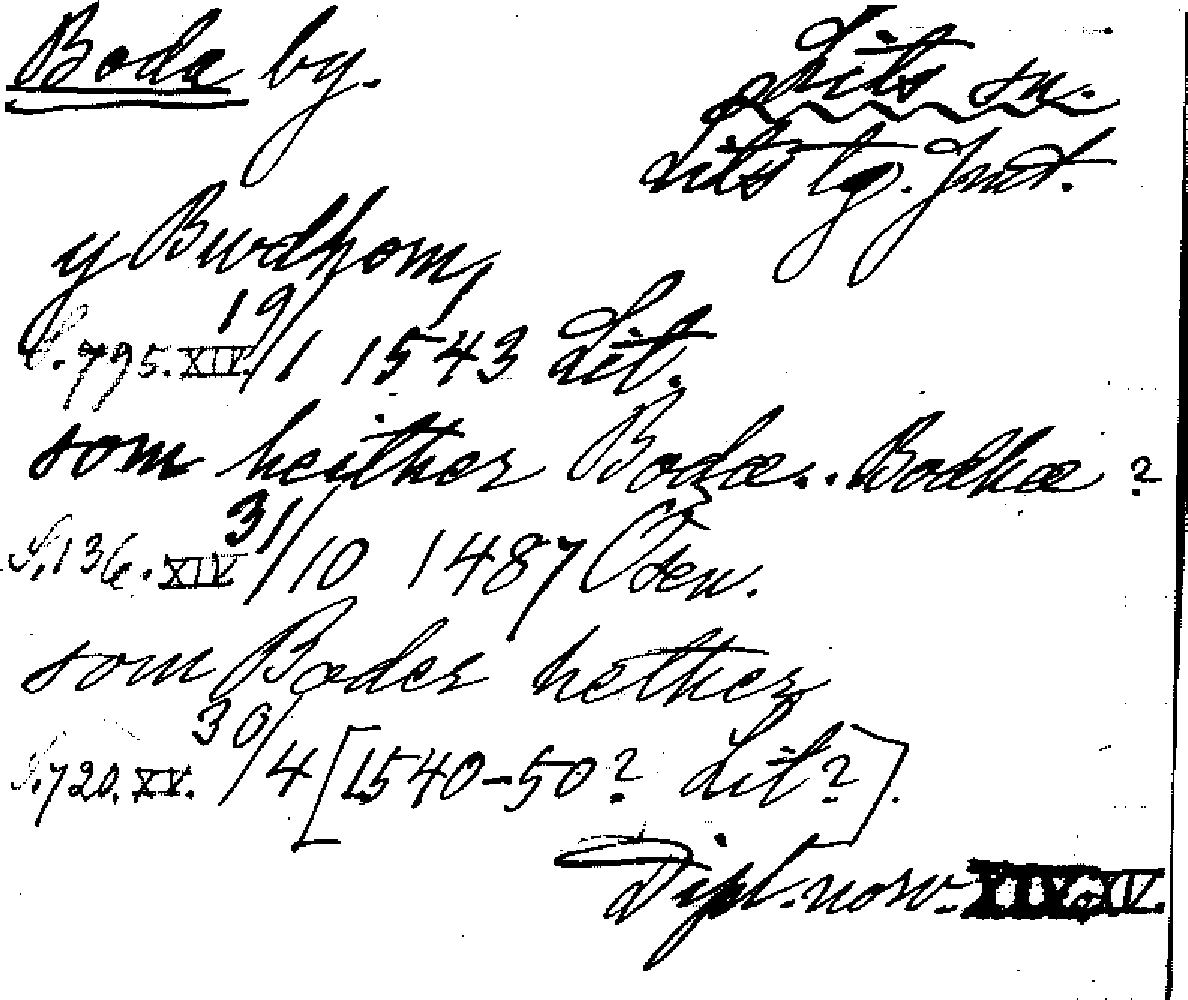 Boda by.
Lits sn.
Lits tg. Jmt.
y Burdhom,
S. 795. XIV. 19/1 1543 Lit.
som heither Bodær. Bodhæ ?
S. 136. XIV 31/10 1487
som Boder hether
S. 720. XV. 30/4 [1540-50? Lit?].
Dipl. norv. XIV. XV.